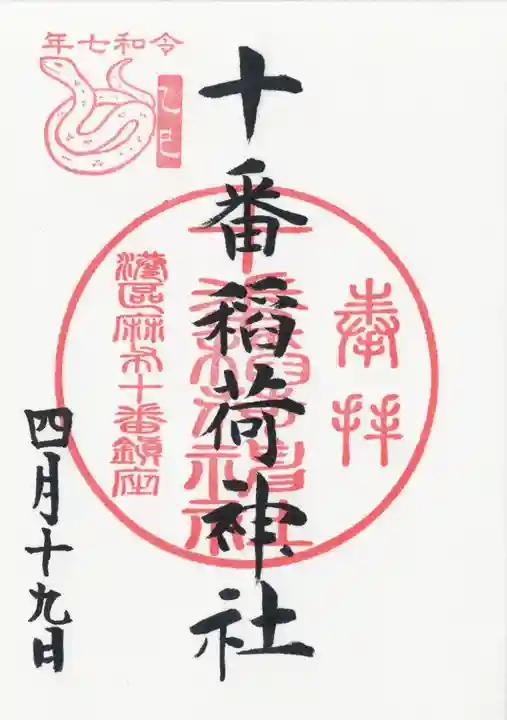 令和七年
乙巳
奉拝
十番稲荷神社
十番稲荷神社
港區麻布十番鎮座
四月十九日